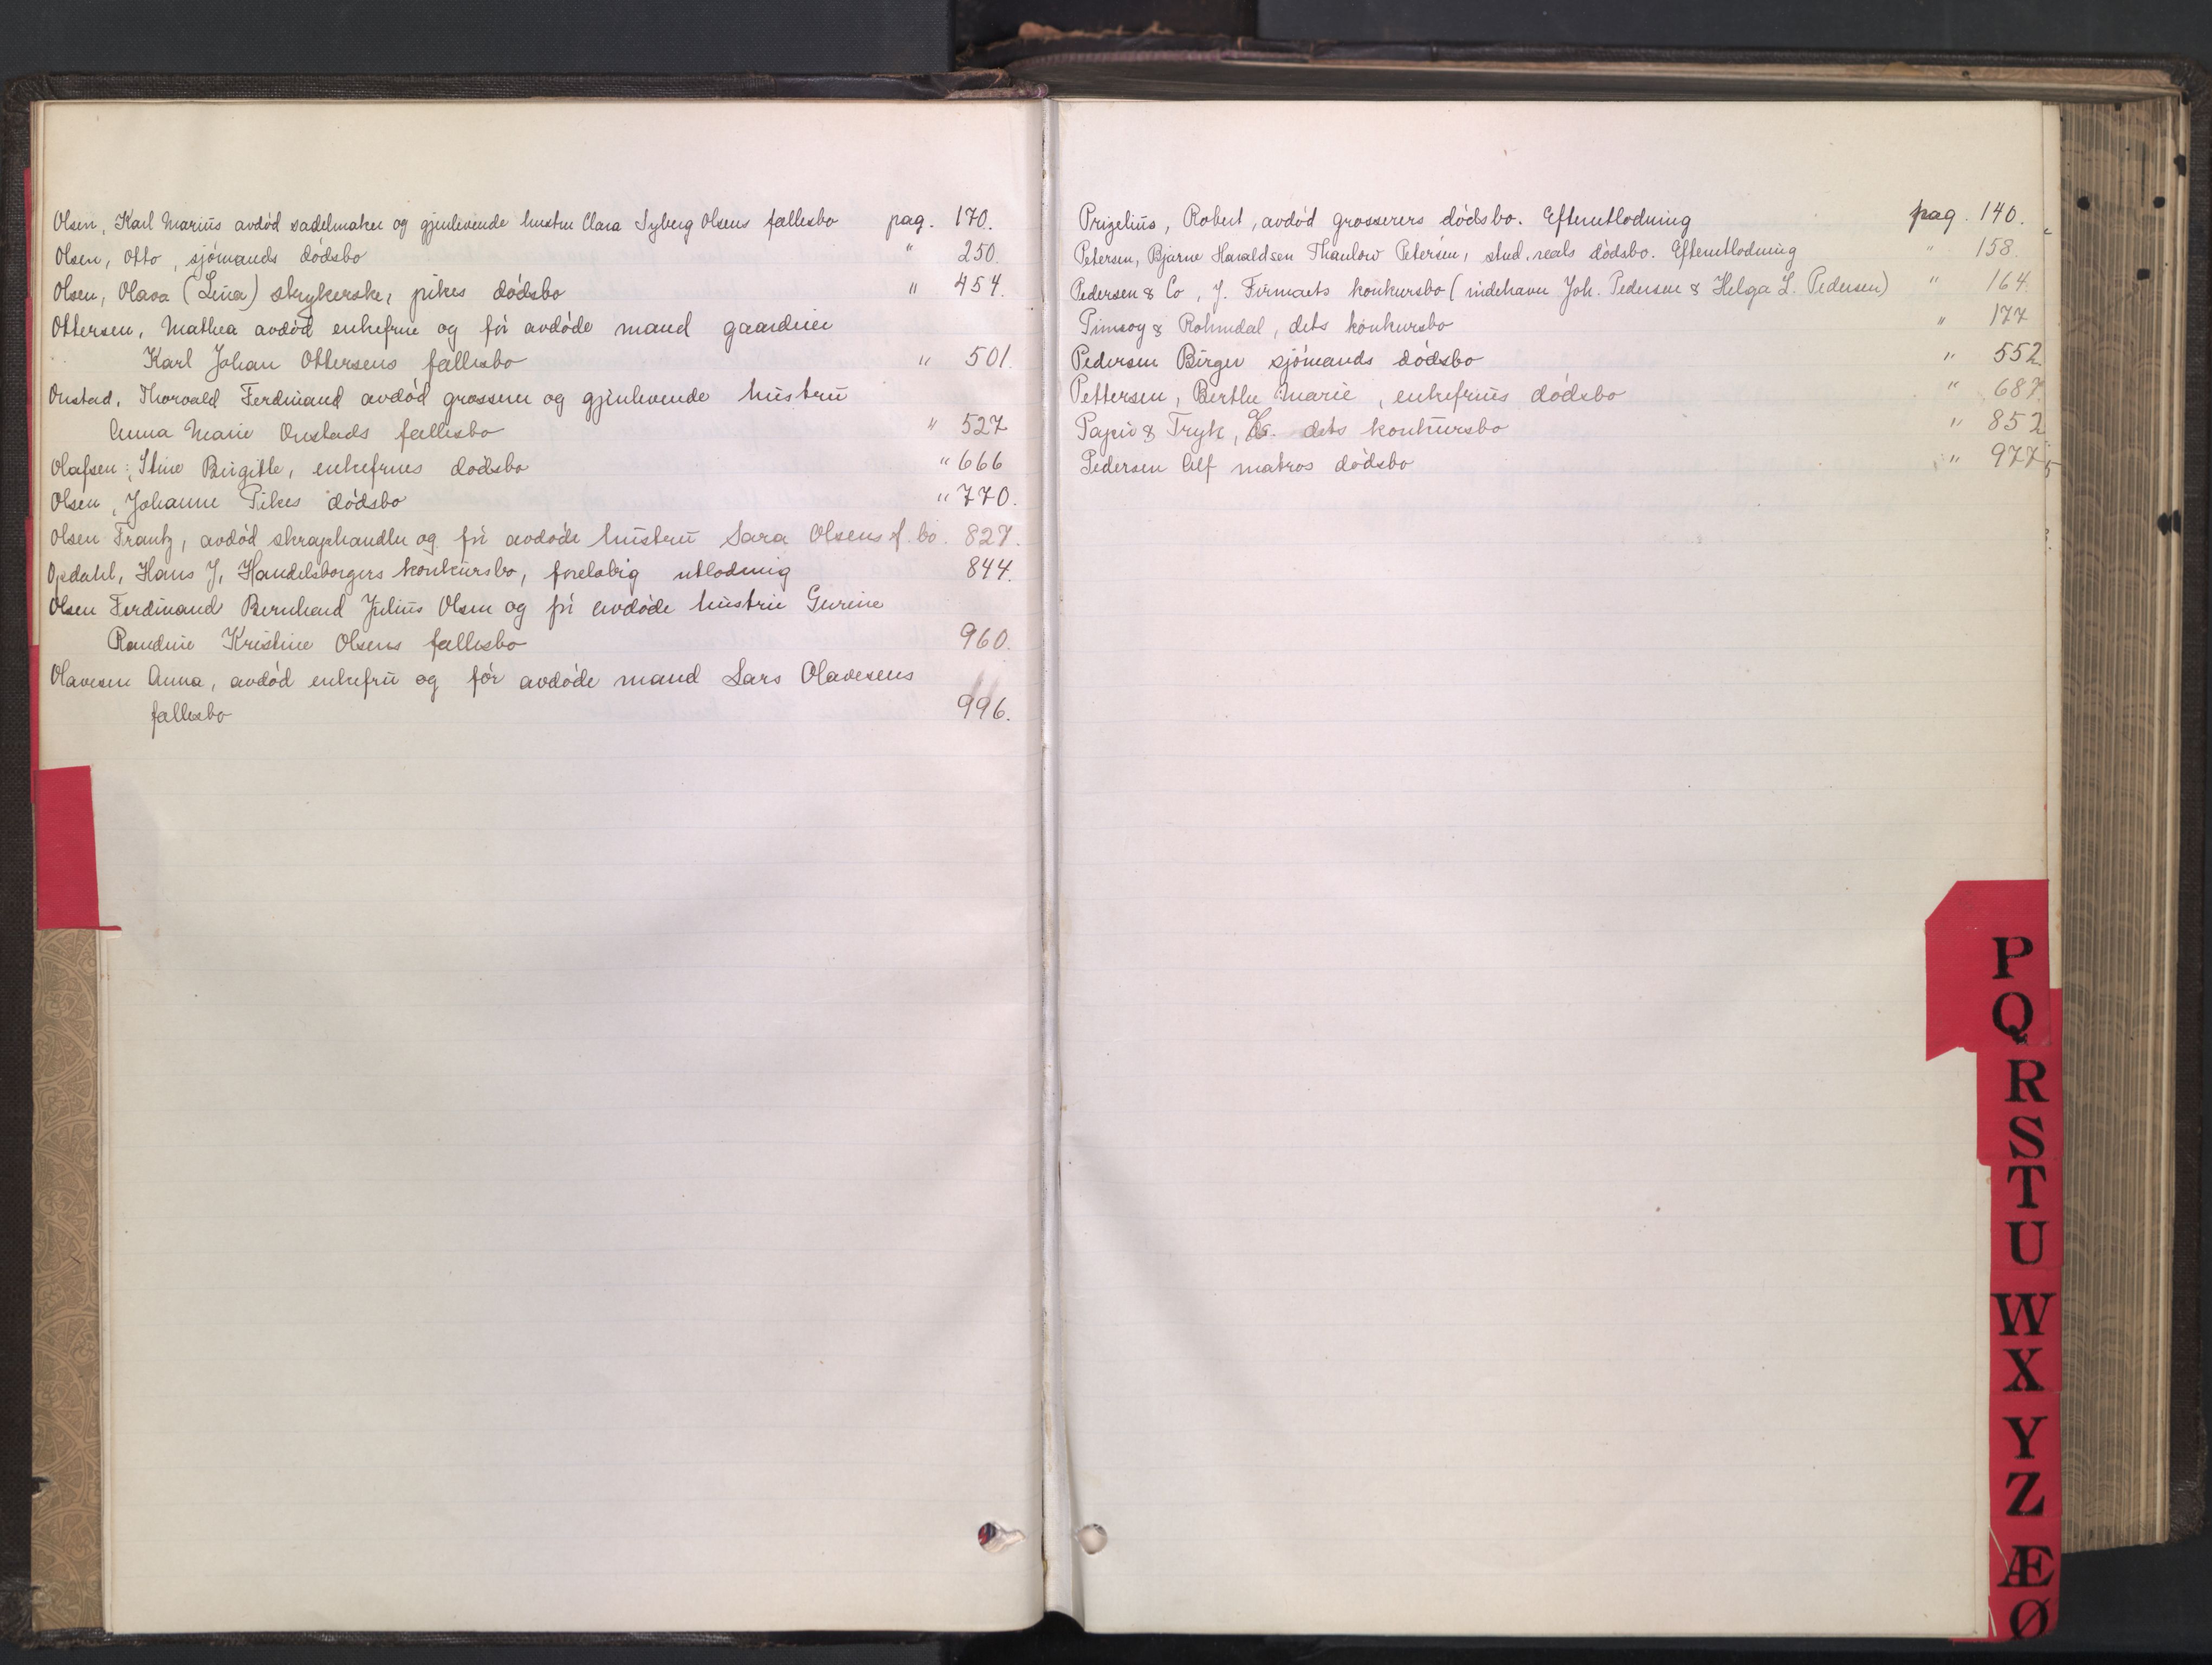 Olsen, Karl Marius avdød sadelmaker og gjenlevende hustru Clara Syberg Olsens fællesbo pag. 170.
Olsen, Otto, sjömands dödsbo " 250.
Olsen, Olava (Lina) strykerske, pikes dödsbo " 454.
Ottersen, Mathea avdöd enkefrue og för avdöde mand gaardeier
Karl Johan Ottersens fællesbo " 501.
Onstad, Thorvald Ferdinand avdöd grosserer og gjenlevende hustru
Anna Marie Onstads fællesbo " 527
Olafsen, Stine Birgitte, enkefrues dödsbo " 666
Olsen, Johanne Pikes dödsbo " 770.
Olsen Frantz, avdöd skraphandler og för avdøde hustru Sara Olsens f. bo. 827.
Opdahl, Hans J, Handelsborgers konkursbo, foreløbig utlodning 844.
Olsen Ferdinand Bernhard Julius Olsen og för avdøde hustru Gurine
Randine Kristine Olsens fællesbo 960.
Olavesen Anna, avdöd enkefru og för avdöde mand Lars Olavesens
fællesbo 996.
Prizelius, Robert, avdöd grosserers dödsbo. Efterutlodning pag. 140.
Petersen, Bjarne Haraldsen Thaulow Petersen, stud. reals dödsbo. Efterutlodning " 158.
Pedersen & Co, J. Firmaets konkursbo (indehaver Joh. Pedersen & Helga L. Pedersen) " 164.
& Rohmdal, dets konkursbo " 177
Pedersen Birger sjömands dödsbo " 552
Pettersen, Berthe Marie, enkefrus dödsbo " 687.
Papir & Tryk, dets konkursbo " 852
Pedersen Alf matros dödsbo " 977
P
Q
R
S
T
U
W
X
Y
Z
Æ
Ø